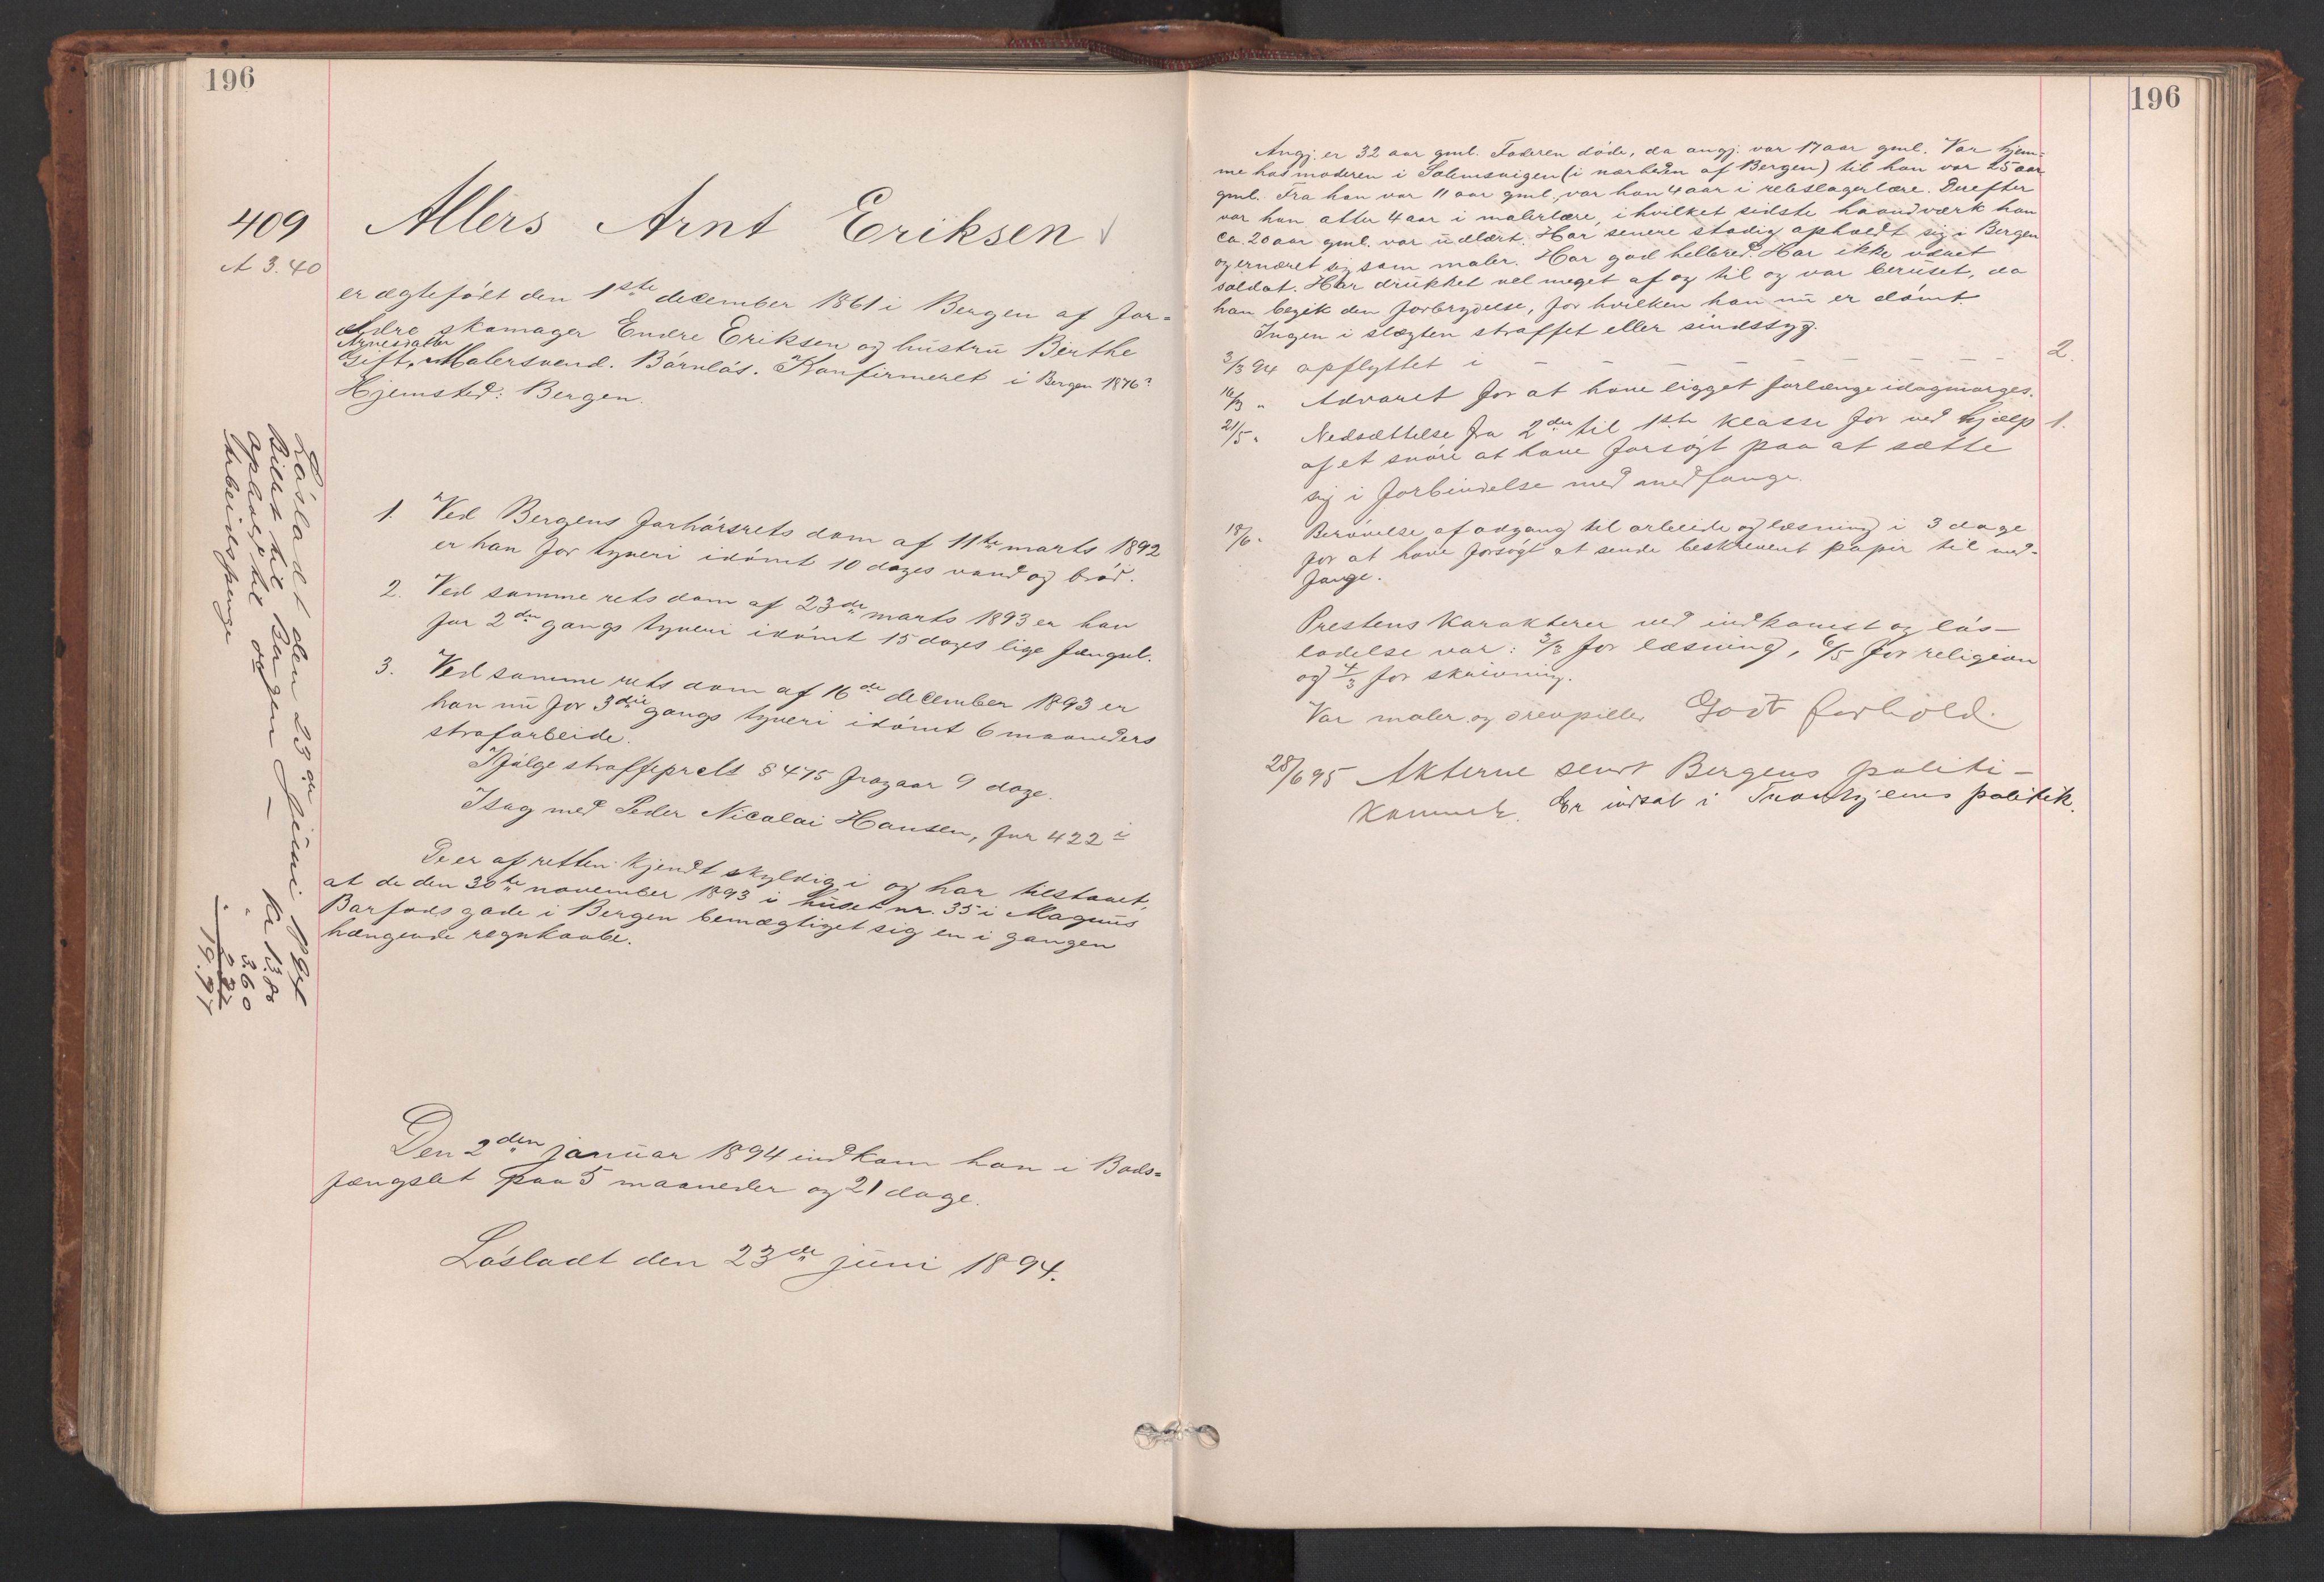 196
409
A 3.40
Allers Arnt Eriksen
er ægtefödt den 1ste december 1861 i Bergen af for-
ældre skomager Endre Eriksen og hustru Birthe
Arnesdatter
Gift. Malersvend. Börnlös. Konfirmeret i Bergen 1876?
Hjemsted: Bergen.
1. Ved Bergens forhörsrets dom af 11te marts 1892
er han for tyveri idömt 10 dages vand og bröd.
2. Ved samme rets dom af 23de marts 1893 er han
for 2den gangs tyveri idömt 15 dages lige fængsel.
3. Ved samme rets dom af 16de december 1893 er
han nu for 3die gangs tyveri idömt 6 maaneders
strafarbeide.
Ifölge straffeprcls § 475 fragaar 9 dage.
Isag med Peder Nicolai Hansen, fnr 422
De er af retten kjendt skyldig i og har tilstaaet,
at de den 30te november 1893 i huset nr. 35 i Magnus
Barfods gade i Bergen bemægtiget sig en i gangen
hængende regnkaabe.
Den 2den januar 1894 indkom han i Bods-
fængslet paa 5 maaneder og 21 dage.
Lösladt den 23de juni 1894.
Lösladt den 23de juni 1894
Billet til Bergen – kr 13.80
Ophold, til og " 3.60
Arbeidspenge " 2.57
19.97
196
Angj. er 32 aar gml. Faderen döde, da angj. var 17 aar gml. Var hjem-
me hos moderen i Solemsvigen (i nærheden af Bergen) til han var 25 aar
gml. Fra han var 11 aar gml., var han 4 aar i rebslagerlære. Derefter
var han atter 4 aar i malerlære, i hvilket sidste haandværk han
ca. 20 aar gml. var udlært. Har senere stadig opholdt sig i Bergen
og ernæret sig som maler. Har god helbred. Har ikke været
soldat. Har drukket vel meget af og til og var beruset, da
han begik den forbrydelse, for hvilken han nu er dömt.
Ingen i slægten straffet eller sindssyg.
3/3 94 opflyttet i – – – – – – – – 2.
16/3 " Advaret for at have ligget forlænge idagmorges.
21/5 " Nedsættelse fra 2den til 1ste klasse for ved hjælp 1.
af et snöre at have forsögt paa at sætte
sig i forbindelse med medfange.
18/6 " Berövelse af adgang til arbeide og læsning i 3 dage
for at have forsögt at sende beskrevent papir til med-
fange.
Prestens karakterer ved indkomst og lös-
ladelse var: 3/3 for læsning, 6/5 for religion
og 4/3 for skrivning.
Var maler og drevpiller Godt forhold.
28/6 95 Akterne sendt Bergens politi-
kammer. Er indsat i Tronhjems politik.